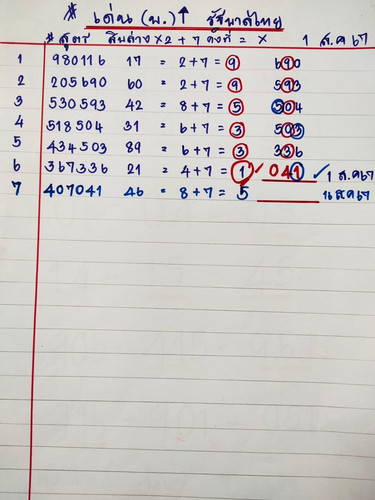 * เด่น (พ.) ↑ รัฐบาลไทย
* สูตร สิบล่าง x 2 + 7 คงที่ = x 1 ส.ค 67
1 980116 17 = 2+7 = 9 690
2 205690 60 = 2+7 = 9 593
3 530593 42 = 8+7 = 5 504
4 518504 31 = 6+7 = 3 503
5 434503 89 = 6+7 = 3 336
6 367336 21 = 4+7 = 1 ✓ 041 ✓ 1 ส.ค 67
7 407041 46 = 8+7 = 5 16 ส.ค 67